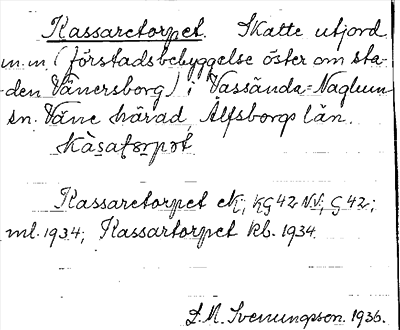 Kassaretorpet. Skatte utjord
m.m (förstadsbebyggelse öster om sta-
den Vänersborg) i Vassända=Naglum
sn. Väne härad, Älfsborgs län.
Kàsatorpǝt
Kassaretorpet ek; KG 42 NV; G 42;
ml. 1934; Kassartorpet kb. 1934
S.M. Svenungsson. 1936.